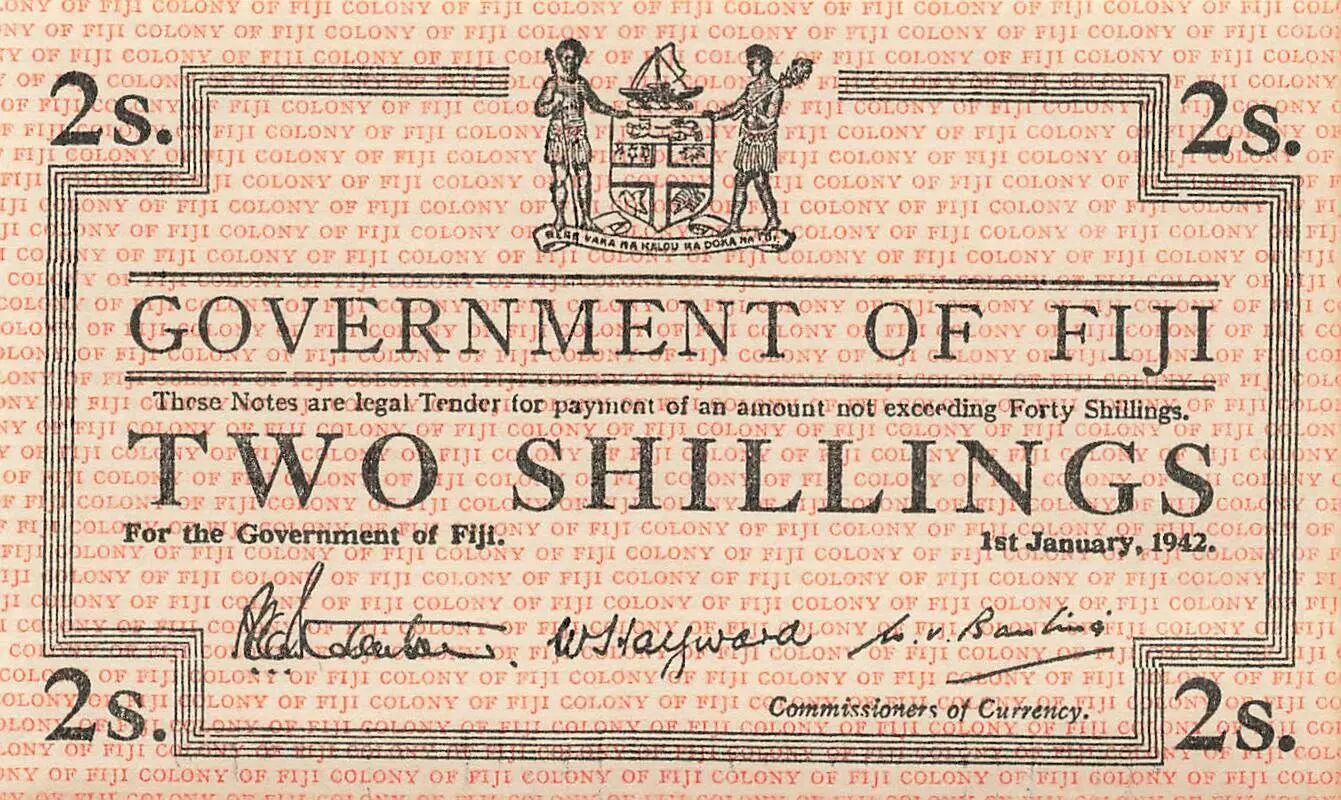 2s.
2s.
RERE VAKA NA KALOU KA DOKA NA TUI
GOVERNMENT OF FIJI
These Notes are legal Tender for payment of an amount not exceeding Forty Shillings.
TWO SHILLINGS
For the Government of Fiji.
1st January, 1942.
WSHayward
2s.
Commissioners of Currency.
2s.
COLONY OF FIJI COLONY OF FIJI COLONY OF FIJI COLONY OF FIJI